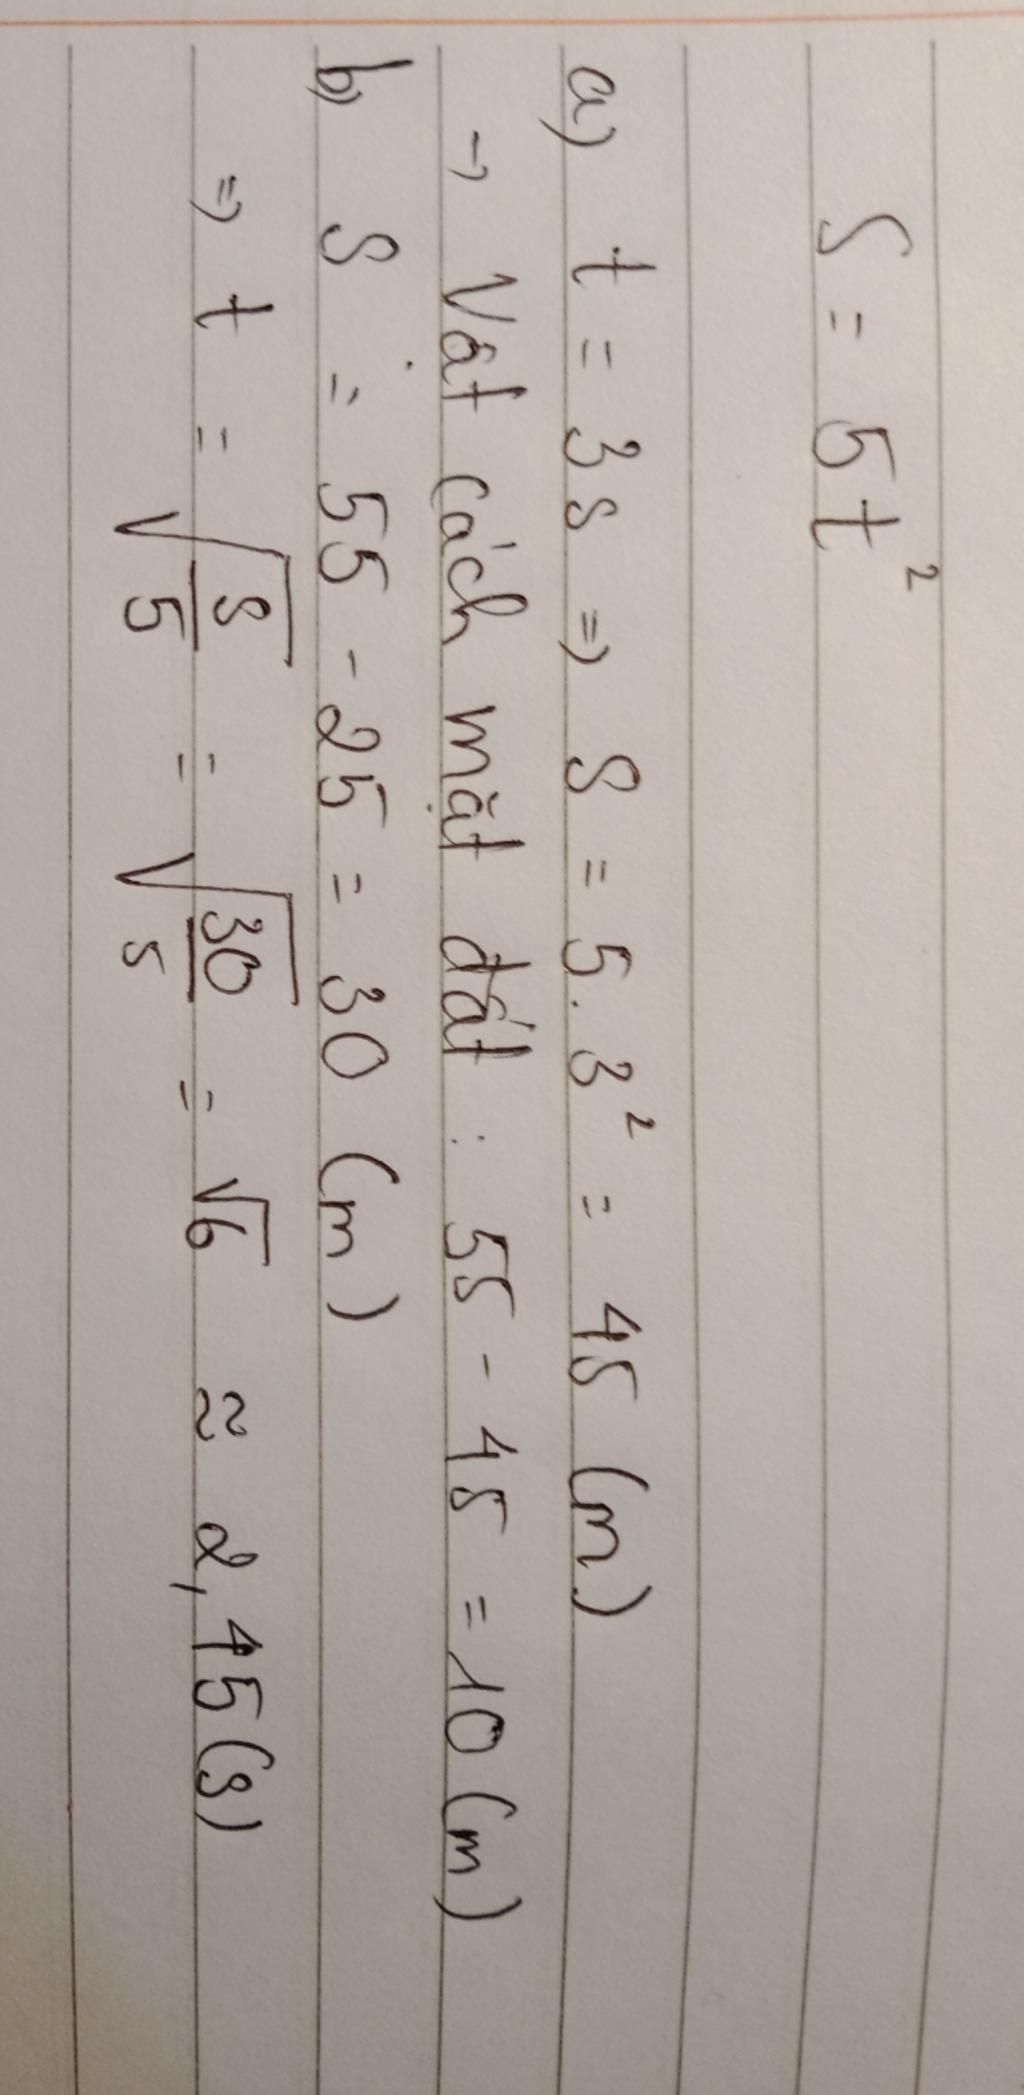 S = 5t²
a) t = 3s => S = 5.3² = 45 (m)
→ Vật cách mặt đất : 55 - 45 = 10 (m)
b) S = 55 - 25 = 30 (m)
=> t = √(S/5) = √(30/5) = √6 ≈ 2,45 (s)